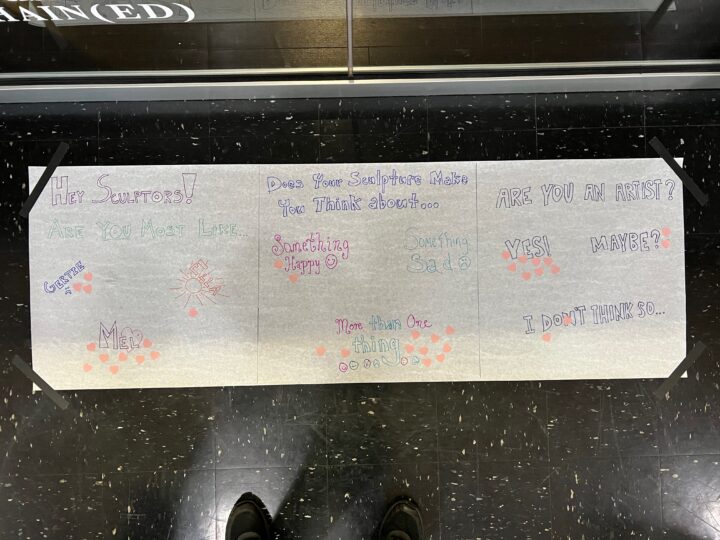 HAIN(ED)
HEY SCULPTORS!
ARE YOU MOST LIKE...
GERTIE
STELLA
MEL?
Does Your Sculpture Make
You Think about...
Something
Happy
Something
Sad
More than One
thing
ARE YOU AN ARTIST?
YES!
MAYBE?
I DON'T THINK SO...